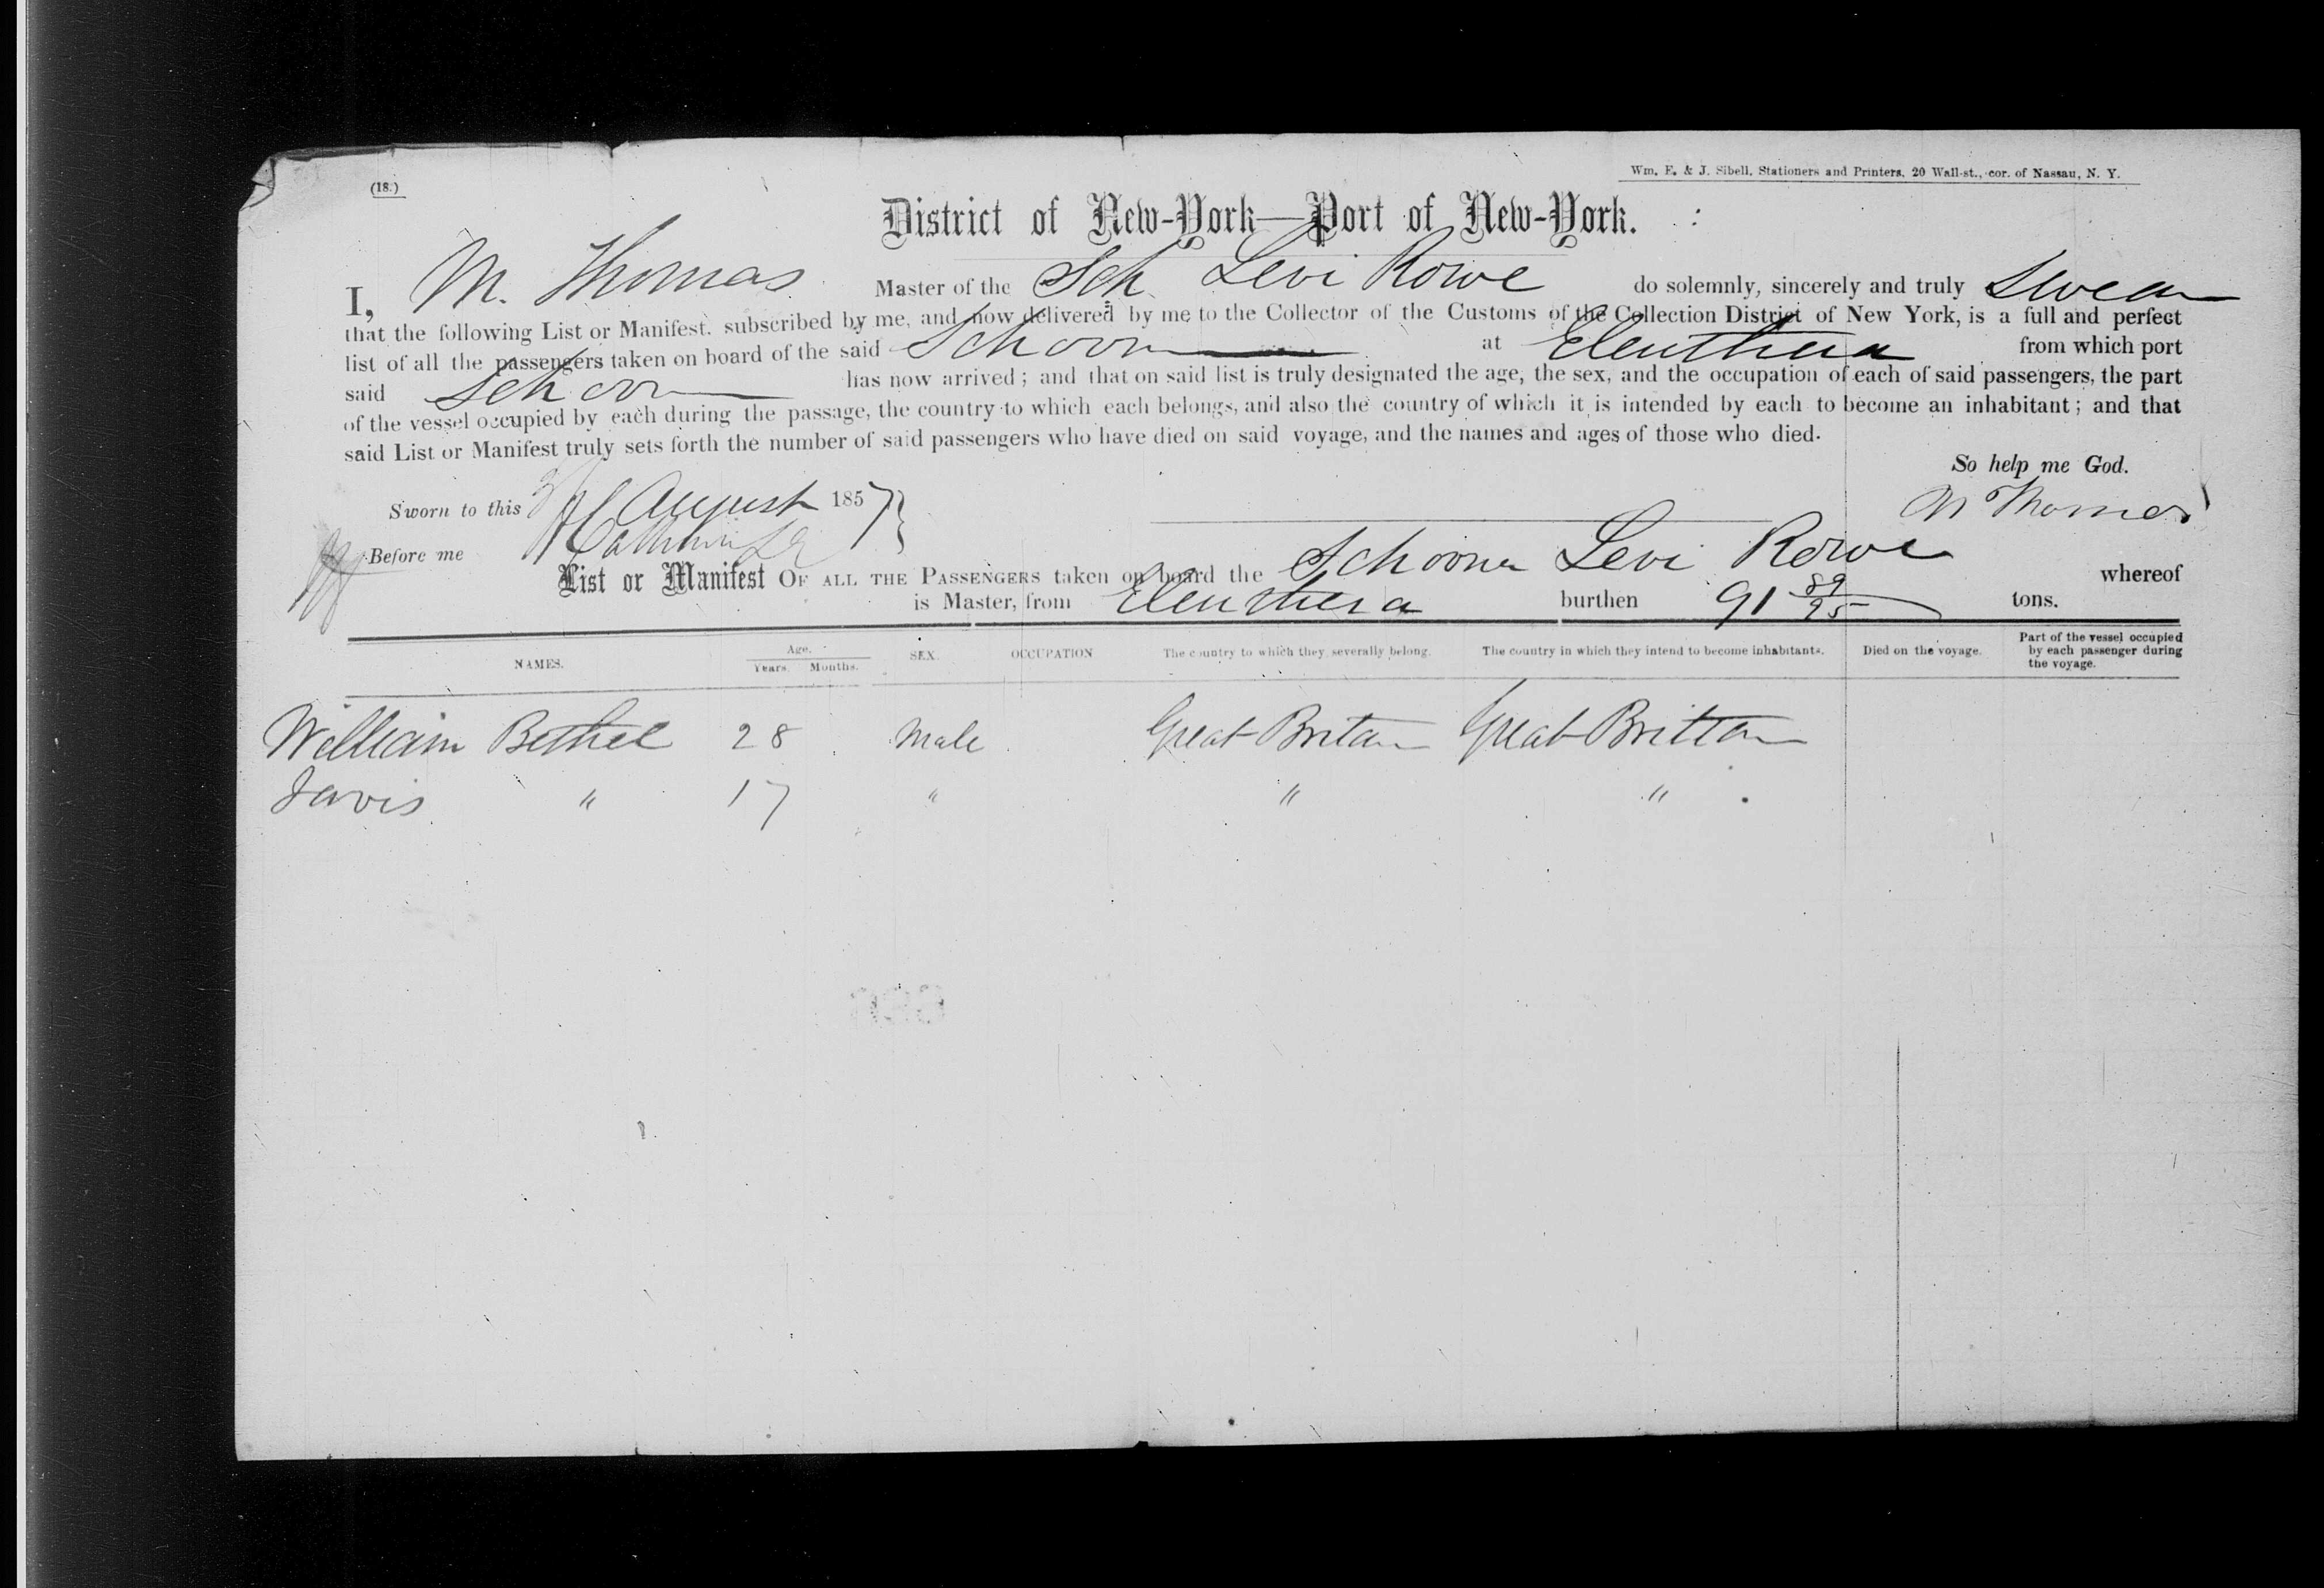 (18.)
Wm. E. & J. Sibell, Stationers and Printers, 20 Wall-st., cor. of Nassau, N. Y.
District of New-York—Port of New-York.
I, M. Thomas Master of the Sch Levi Rowe do solemnly, sincerely and truly Swear
that the following List or Manifest, subscribed by me, and now delivered by me to the Collector of the Customs of the Collection District of New York, is a full and perfect
list of all the passengers taken on board of the said Schoon at Eleuthera from which port
said Schoon has now arrived; and that on said list is truly designated the age, the sex, and the occupation of each of said passengers, the part
of the vessel occupied by each during the passage, the country to which each belongs, and also the country of which it is intended by each to become an inhabitant; and that
said List or Manifest truly sets forth the number of said passengers who have died on said voyage, and the names and ages of those who died.
So help me God.
Sworn to this August 1857 M Thomas
Before me
List or Manifest OF ALL THE PASSENGERS taken on board the Schooner Levi Rowe whereof
is Master, from Eleuthera burthen 91 89/95 tons.
NAMES. Age. Years. Months. SEX. OCCUPATION The country to which they severally belong. The country in which they intend to become inhabitants. Died on the voyage. Part of the vessel occupied by each passenger during the voyage.
William Bethel 28 Male Great Britan Great Brittan
Jarvis " 17 " " "